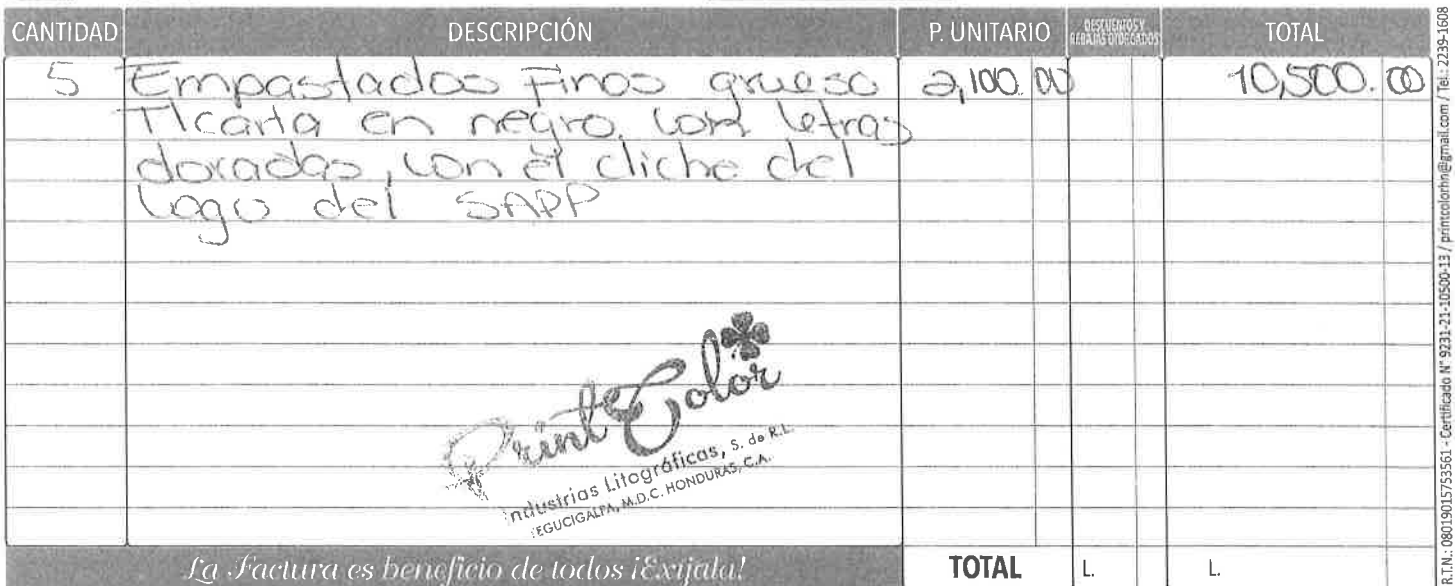 CANTIDAD DESCRIPCIÓN P. UNITARIO DESCUENTOS Y REBAJAS OTORGADOS TOTAL
5 Empastados Finos grueso 2,100.00 10,500.00
T/carta en negro, con letras
doradas, con el cliche del
logo del SAPP
Print Color
Industrias Litográficas, S. de R.L.
TEGUCIGALPA, M.D.C. HONDURAS, C.A.
La Factura es beneficio de todos ¡Exíjala! TOTAL L. L.
R.T.N.: 08019015753561 - Certificado N° 9231-21-10500-13 / printcolorhn@gmail.com / Tel.: 2239-1608